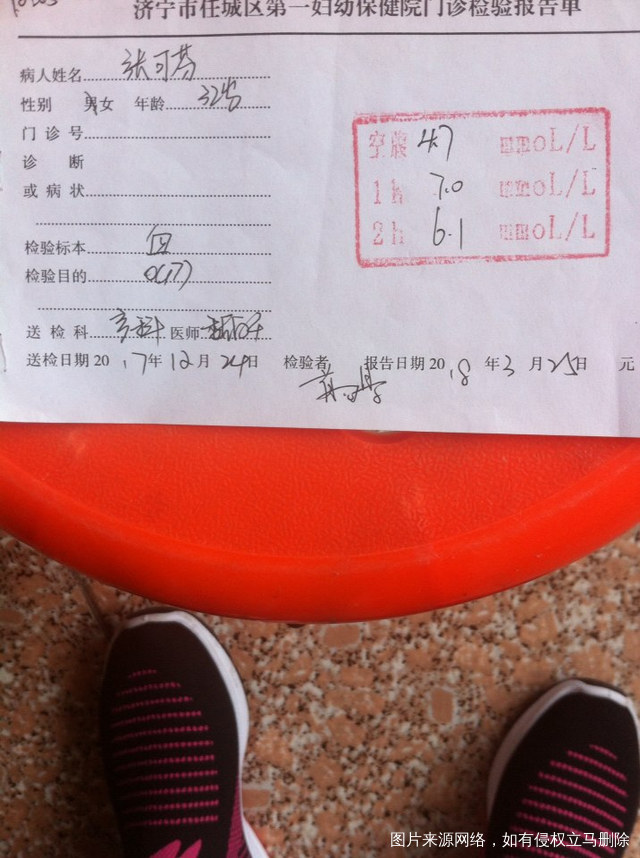 济宁市任城区第一妇幼保健院门诊检验报告单
病人姓名 张可芬
性别 男女 年龄 32岁
门诊号
诊断
或病状
检验标本 血
检验目的
送检科 产科 医师
送检日期 2017年12月24日 检验者 报告日期 2018年3月25日 元
空腹 4.7 mmoL/L
1h 7.0 mmoL/L
2h 6.1 mmoL/L
图片来源网络，如有侵权立马删除